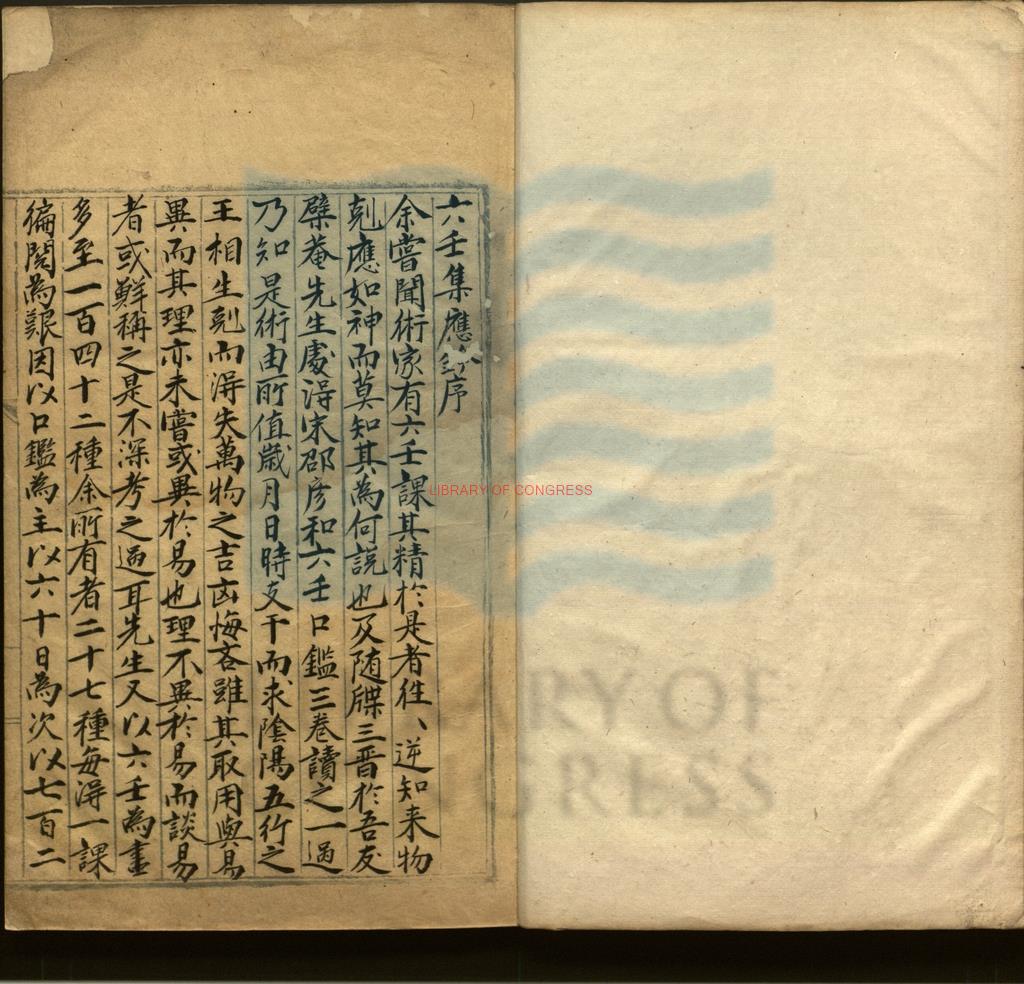 六壬集應鈐序
余嘗聞術家有六壬課其精於是者徃、逆知来物
剋應如神而莫知其為何説也及随牒三晋於吾友
檗菴先生處淂宋邵彦和六壬口鑑三巻讀之一過
乃知是術由所值歳月日時支干而求陰陽五行之
王相生剋而淂失萬物之吉凶悔吝雖其取用與易
異而其理亦未嘗或異於易也理不異於易而談易
者或鮮稱之是不深考之過耳先生又以六壬為書
多至一百四十二種余所有者二十七種每淂一課
徧閲為艱因以口鑑為主以六十日為次以七百二
LIBRARY OF CONGRESS